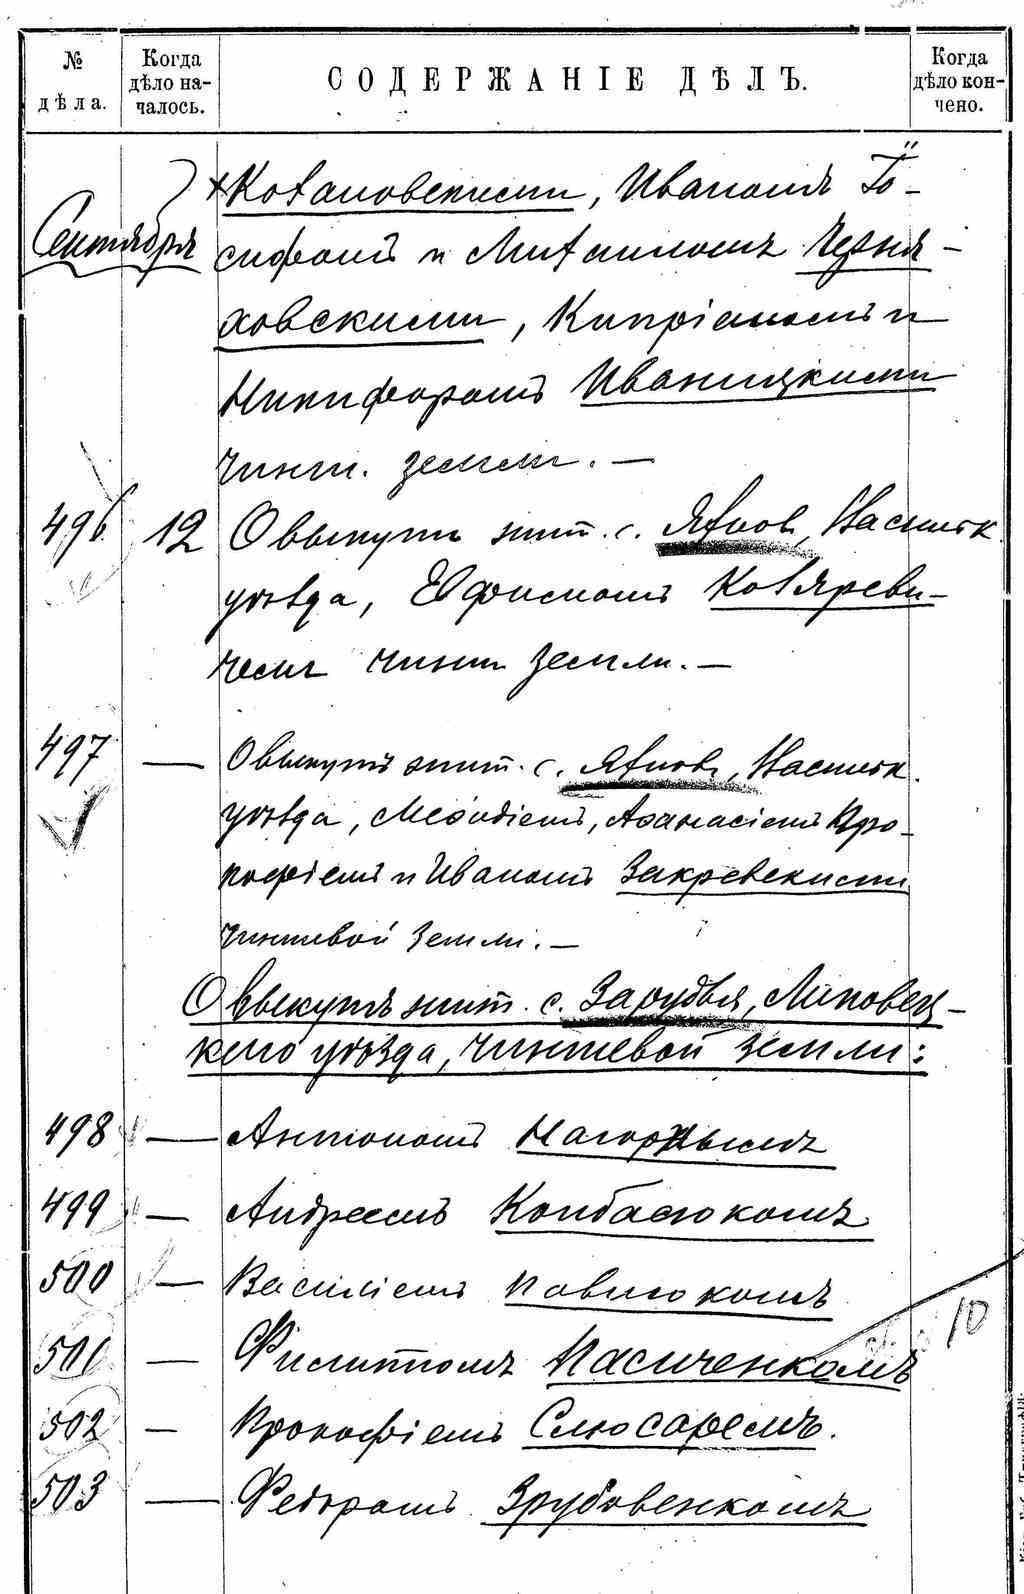 №
дѣла.
Когда
дѣло на-
чалось.
СОДЕРЖАНІЕ ДѢЛЪ.
Когда
дѣло кон-
чено.
Сентября
Кохановскими, Иваномъ Іо-
сифомъ и Михаиломъ Черня-
ховскими, Кипріаномъ и
Никифоромъ Иваницкими
чинш. земли. —
496 12 О выкупѣ жит. с. Яхнов, Васильк.
уѣзда, Евфимомъ Котляреви-
чемъ чинш земли. —
497 — О выкупѣ жит. с. Яхнов, Васильк.
уѣзда, Меѳодіемъ, Аѳанасіемъ Про-
кофіемъ и Иваномъ Закревскими
чиншевой земли. —
О выкупѣ жит. с. Зарудья, Липовец-
каго уѣзда, чиншевой земли:
498 — Антономъ Нагорнымъ
499 — Андреемъ Колбасюкомъ
500 — Василіемъ Павлюкомъ
10
501 — Филиппомъ Пасиченкомъ
502 — Прокофіемъ Слюсаремъ.
503 — Федоромъ Зрубовенкомъ